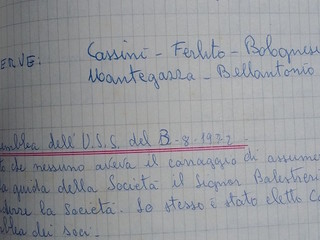 ERVE: Cassini - Ferlito - Bolognesi
Mantegazza - Bellantonio
emblea dell'U.S.S. del 3-8-1972 -
to se nessuno aveva il coraggio di assumere
a guida della Società il signor Balestrieri
la Società. Lo stesso è stato eletto
blea dei soci.